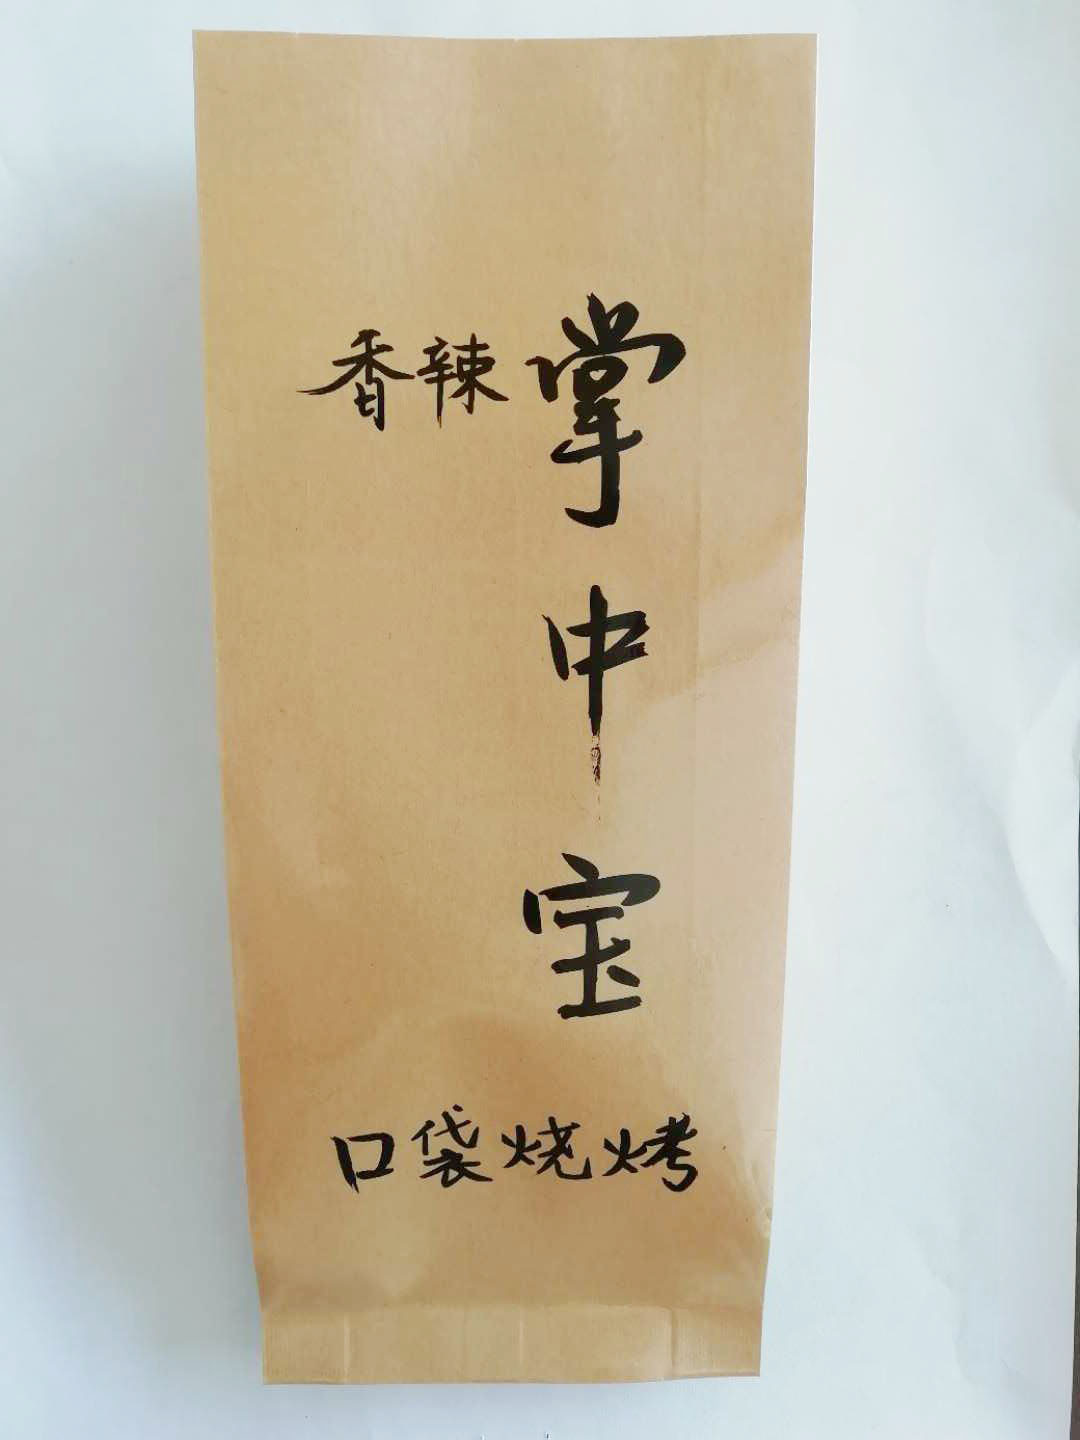 香辣
掌中宝
口袋烧烤